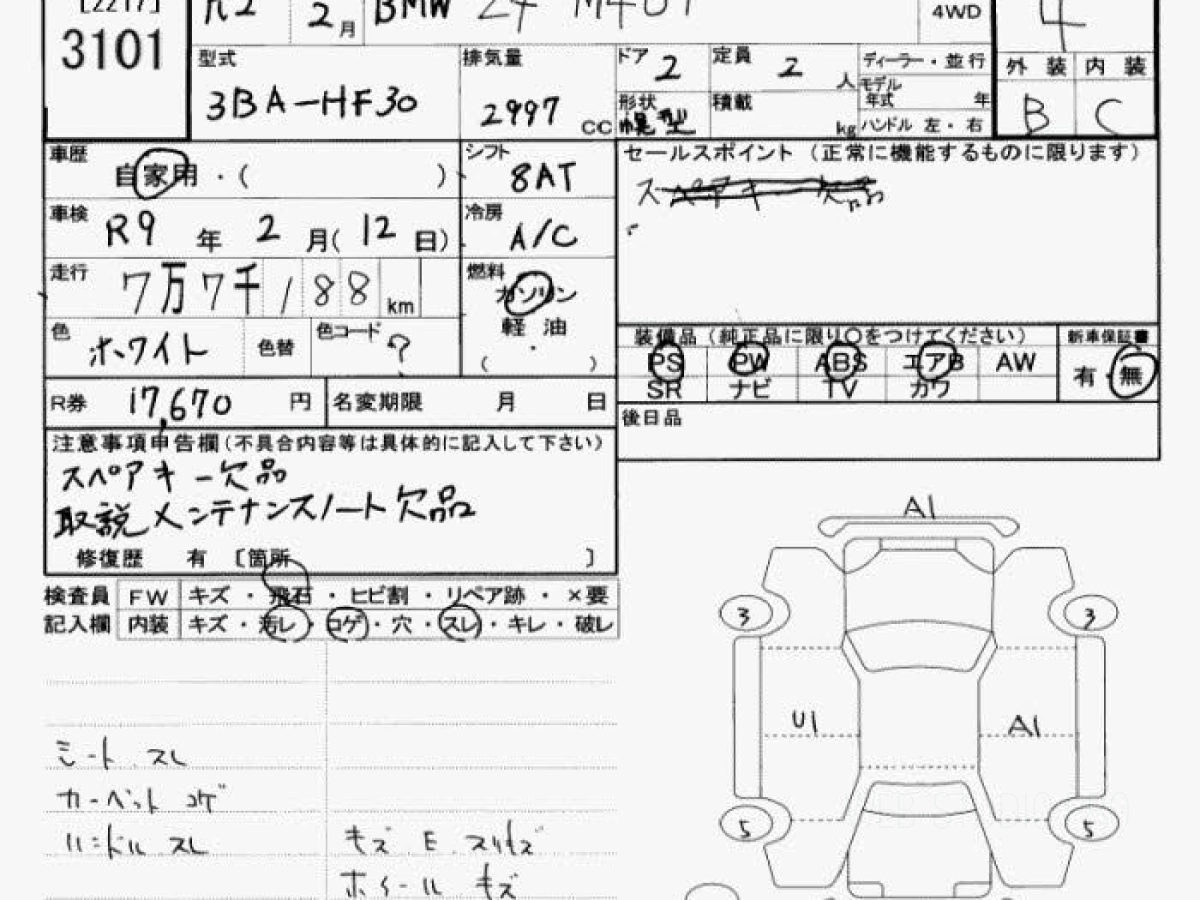 [2217]
3101
R2 2月 BMW Z4 M40i 4WD 4
型式 3BA-HF30
排気量 2997 CC
ドア 2 定員 2 人
形状 幌型 積載 kg
ディーラー・並行
モデル年式 年
ハンドル 左・右
外装 内装
B C
車歴 自家用・( )
シフト 8AT
車検 R9 年 2 月(12 日)
冷房 A/C
走行 7万7千188 km
燃料 ガソリン
軽油
( ・ )
色 ホワイト 色替 色コード ?
R券 17,670 円 名変期限 月 日
セールスポイント(正常に機能するものに限ります)
スペアキー欠品
装備品(純正品に限り○をつけてください) 新車保証書
PS PW ABS エアB AW 有・無
SR ナビ TV カワ
後日品
注意事項申告欄(不具合内容等は具体的に記入して下さい)
スペアキー欠品
取説メンテナンスノート欠品
修復歴 有 〔箇所 〕
検査員 FW キズ・飛石・ヒビ割・リペア跡・×要
記入欄 内装 キズ・汚レ・コゲ・穴・スレ・キレ・破レ
シート スレ
カーペット コゲ
ハンドル スレ
キズ E スリキズ
ホイール キズ
A1
3 3
U1 A1
5 5